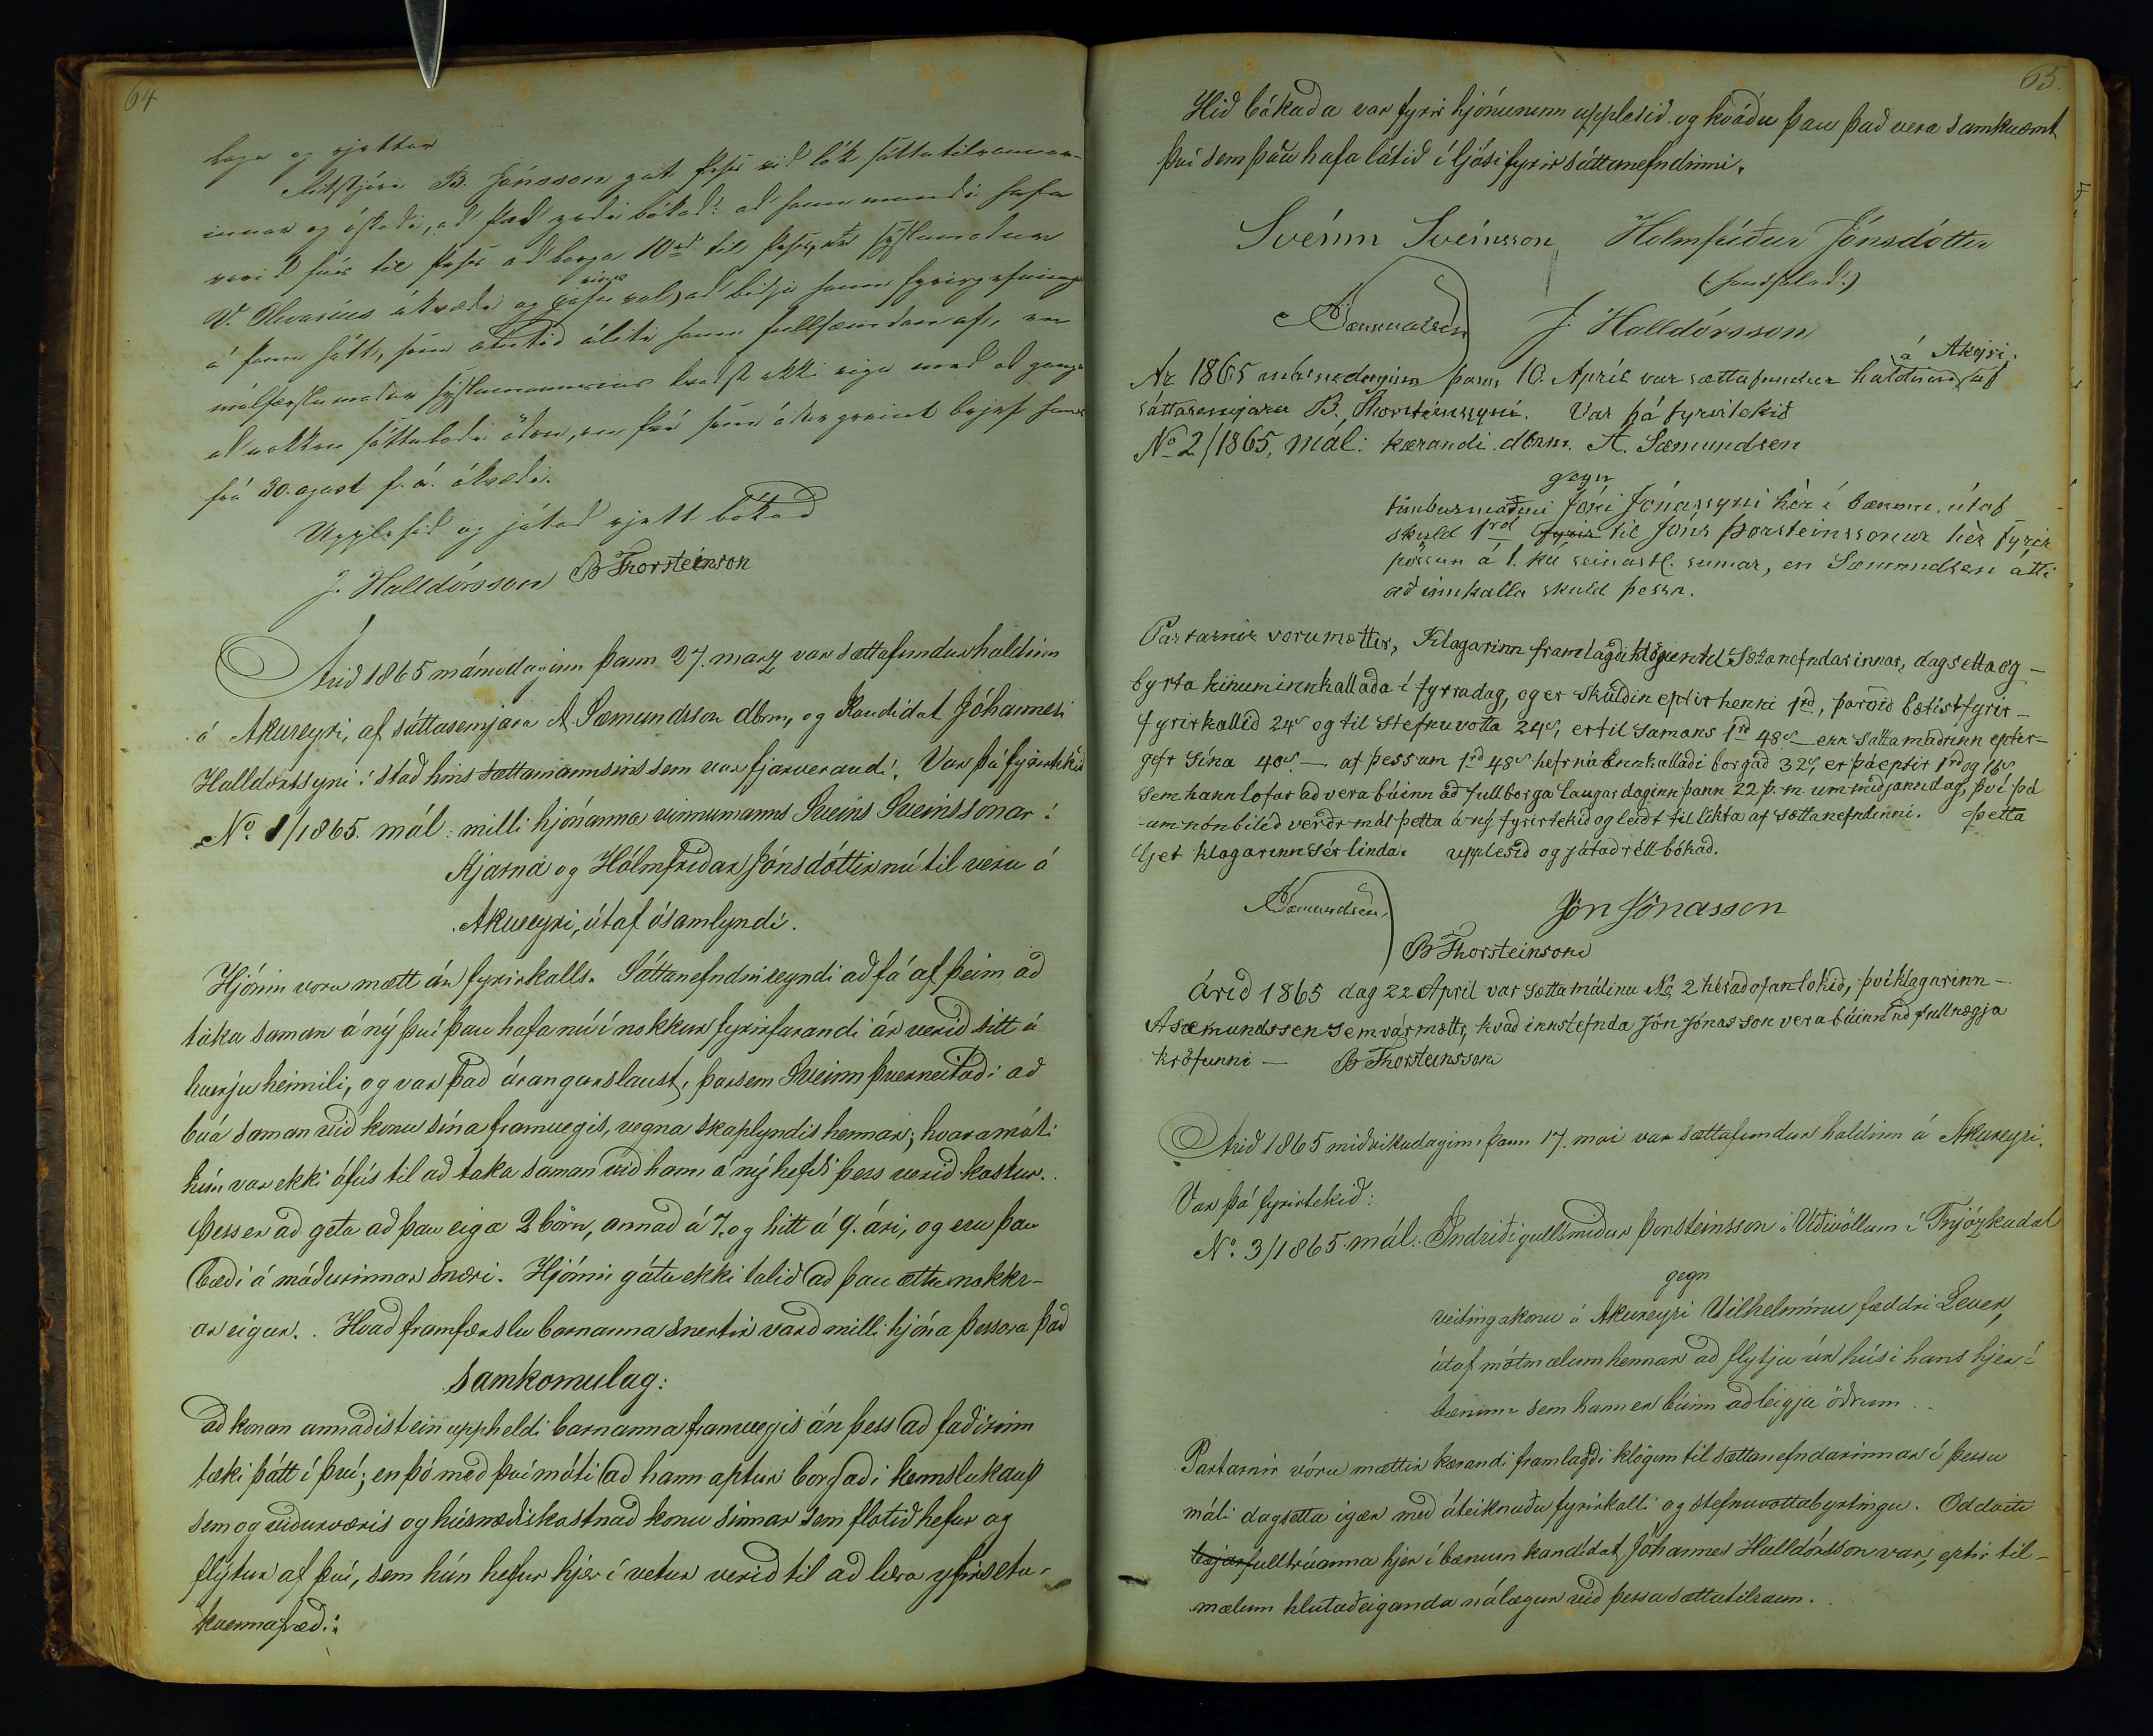 64
laga og rjettar
Ritstjóri B. Jónsson gat þess við lok sáttatilraunar-
innar og óskaði, að það yrði bókað: að hann mundi hafa
verið fús til þess að borga 10rd til þess, er sýslumaður
V. Havsteins ákvæði og gefur vel, að biðja hann fyrirgefningar
á þann hátt, sem ætlið áliti hann fullsæmdan af, en
málfærslumaður sýslumannsins kvaðst ekki eiga með að ganga
að nokkru sáttaboði öðru, en því sem áðurgreint brjef hans
frá 30. agust f. á. ákvæði.
Upplesið og játað rjett bókað
J. Halldórsson B Thorsteinson
Árið 1865 mánudaginn þann 27. marz var sættafundur haldinn
á Akureyri, af sáttasemjara A. Sæmundsson dbrm, og Kandidat Jóhannesi
Halldórssyni í stað hins sættamannsins sem var fjærverandi. Var þá fyrirtekið
No. 1/1865. mál: milli hjónanna vinnumanns Sveins Sveinssonar í
Kjarna og Hólmfríðar Jónsdóttir nú til veru á
Akureyri, útaf ósamlyndi.
Hjónin voru mætt án fyrirkalls. Sáttanefndin reyndi að fá af þeim að
taka saman á ný því þau hafa nú í nokkur fyrirfarandi ár verið sitt á
hverju heimili, og var það árangurslaust, þarsem Sveinn þverneitaði að
búa saman við konu sína framvegis, vegna skaplyndis hennar; hvaramóti
hún var ekki ófús til að taka saman við hann á ný hefði þess verið kostur.
Þess er að geta að þau eiga 2 börn, annað á 7. og hitt á 9. ári, og eru þau
bæði á móðurinnar snæri. Hjónin gátu ekki talið að þau ættu nokkr-
ar eigur. Hvað framfærslu barnanna snertir varð milli hjóna þessara það
samkomulag:
að konan annaðist ein uppheldi barnanna framvegis án þess að faðirinn
tæki þátt í því; en þó með því móti að hann aptur borgaði kennslukaup
sem og viðurværis og húsnæðiskostnað konu sinnar sem flotið hefur og
flýtur af því, sem hún hefur hjer í vetur verið til að læra yfirsetu-
kvennafræði:
65.
Hið bókaða var fyrir hjónunum upplesið og kváðu þau það vera samkvæmt
því sem þau hafa látið í ljósi fyrir sáttanefndinni.
Sveinn Sveinsson Holmfríður Jónsdóttir
(handsalað.)
ASæmundsen J. Halldórsson
á Akeyri.
Ár 1865 mánudaginn þann 10. April var sættafundur haldinn af
sáttasemjara B. Thorsteinssyni. Var þá fyrirtekið
No 2/1865, mál: kærandi dbrm. A. Sæmundsen
gegn
timburmaðni Jóni Jónassyni hér í bænum, útaf
skuld 1rd fyrir til Jóns Þorsteinssonar hér fyrir
pössun á 1. kú seinastl. sumar, en Sæmundsen átti
að innkalla skuld þessa.
Partarnir voru mættir, Klagarinn framlagði klögun til Sættanefndarinnar, dagsetta og -
byrta hinum innkallaða í fyrradag, og er skuldin eptir henni 1rd, þarvið bætist fyrir -
fyrirkallið 24s og til Stefnuvotta 24s, er til Samans 1rd 48s - enn Sáttamaðrinn epter-
gefr Sína 40s. - af þessum 1rd 48s hefr nú Innkallaði borgað 32s, er þá eptir 1rd og 16s
sem hann lofar að vera búinn að fullborga laugardaginn þann 22 þ. m. um miðjann dag, því þá
um nónbilið verðr mál þetta á ný fyrirtekið og leidt til likta af Sættanefndinni. Þetta
ljet klagarinn sér linda. upplesið og játað rétt bókað.
ASæmundsen Jón Jónasson
B Thorsteinson
Árið 1865 dag 22 April var sættamálinu No 2 hér að ofan lokið, því klagarinn -
A Sæmundssen sem var mættr, kvað innstefnda Jón Jónasson vera búinn að fullnægja
kröfunni - B Thorsteinsson
Árið 1865 miðvikudaginn þann 17. mai var sættafundur haldinn á Akureyri.
Var þá fyrirtekið:
No. 3/1865. mál. Indriði gullsmiður Þorsteinsson á Víðivöllum í Fnjóskadal
gegn
veitingakonu á Akureyri Vilhelmínu fæddri Lever,
útaf mótmælum hennar að flytja úr húsi hans hjer í
bænum sem hann er búinn að leigja öðrum.
Partarnir vóru mættir kærandi framlagði klögun til sættanefndarinnar í þessu
máli dagsetta ígær með áteiknuðu fyrirkalli og stefnuvottabyrtingu. Oddviti
bæjarfulltrúanna hjer í bænum kandidat Jóhannes Halldórsson var, eptir til-
mælum hlutaðeiganda nálægur við þessa sættatilraun.